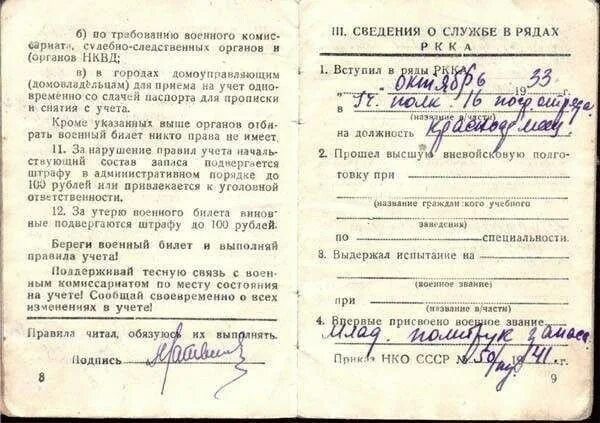 б) по требованию военного комис-
сариата, судебно-следственных органов и
(органов НКВД;
в) в городах домоуправляющим
(домовладельцам) для приема на учет одно-
временно со сдачей паспорта для прописки
и снятия с учета.
Кроме указанных выше органов отби-
рать военный билет никто права не имеет.
11. За нарушение правил учета началь-
ствующий состав запаса подвергается
штрафу в административном порядке до
100 рублей или привлекается к уголовной
ответственности.
12. За утерю военного билета винов-
ные подвергаются штрафу до 100 рублей.
Береги военный билет и выполняй
правила учета!
Поддерживай тесную связь с воен-
ным комиссариатом по месту состояния
на учете! Сообщай своевременно о всех
изменениях в учете!
Правила читал, обязуюсь их выполнять.
Подпись
8
III. СВЕДЕНИЯ О СЛУЖБЕ В РЯДАХ
РККА
1. Вступил в ряды РККА
октябрь 1933 г.
в 14 полк 16 погранотряда
(название в/части)
на должность красноармеец
2. Прошел высшую вневойсковую подго-
товку при
(название гражданского учебного
заведения)
по специальности.
3. Выдержал испытание на
(военное звание)
при
(название в/части)
4. Впервые присвоено военное звание
млад. политрук запаса
Приказ НКО СССР № 50 1941 г.
9